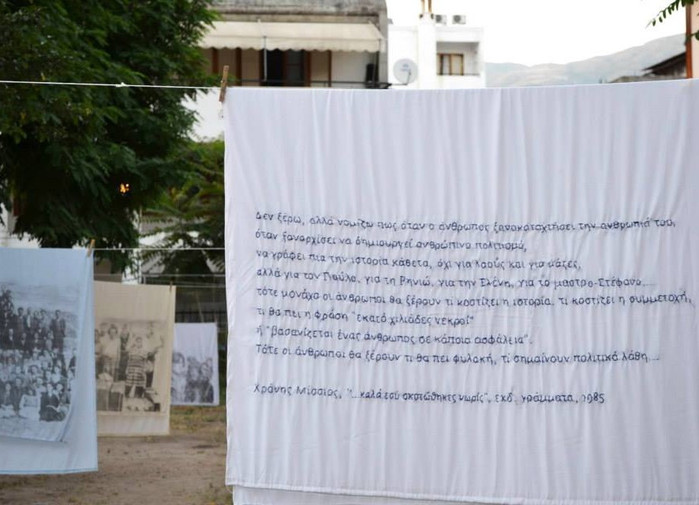 Δεν ξέρω, αλλά νομίζω πως όταν ο άνθρωπος ξανακαταχτήσει την ανθρωπιά του,
όταν ξαναρχίσει να δημιουργεί ανθρώπινο πολιτισμό,
να γράφει πια την ιστορία κάθετα, όχι για λαούς και για μάζες,
αλλά για τον Παύλο, για τη Ρηνιώ, για την Ελένη, για το μαστρο-Στέφανο....
τότε μονάχα οι άνθρωποι θα ξέρουν τι κοστίζει η ιστορία, τι κοστίζει η συμμετοχή,
τι θα πει η φράση "εκατό χιλιάδες νεκροί"
ή "βασανίζεται ένας άνθρωπος σε κάποια ασφάλεια".
Τότε οι άνθρωποι θα ξέρουν τι θα πει φυλακή, τί σημαίνουν πολιτικά λάθη....
Χρόνης Μίσσιος, "...καλά εσύ σκοτώθηκες νωρίς", εκδ. γράμματα, 1985